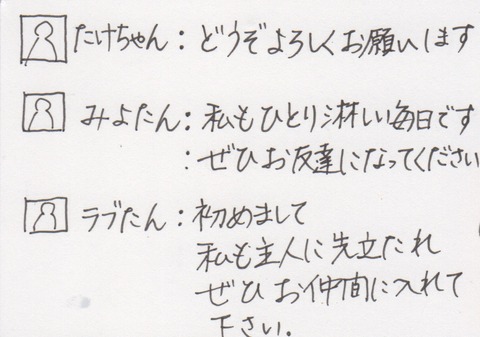 たけちゃん：どうぞよろしくお願いします
みよたん：私もひとり淋しい毎日です
：ぜひお友達になってください
ラブたん：初めまして
私も主人に先立たれ
ぜひお仲間に入れて
下さい.